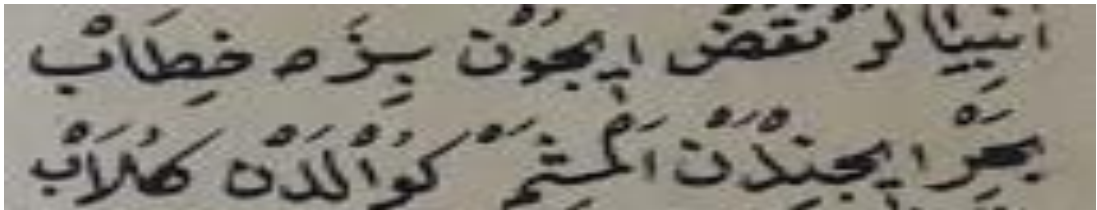 اَنْبِيَالَرْ نَقْضْ اِيجُونْ بِزَه خِطَابْ
بَحْرْ ايجِنْدَنْ اَلْمِشَمْ كُلَابْ